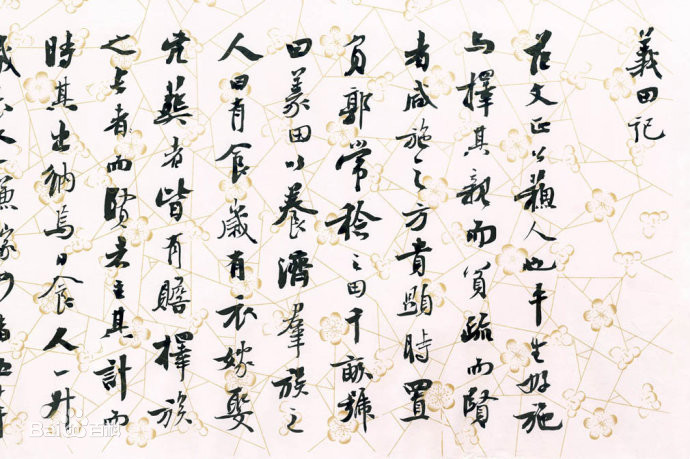 義田記
范文正公蘓人也平生好施
与擇其親而貧疏而賢
者咸施之方貴顯時置
負郭常稔之田千畝號
曰義田以養濟羣族之
人日有食歲有衣嫁娶
凶葬者皆有贍擇族
之長者而賢者主其計而
時其出納焉日食人一升
Baidu百科